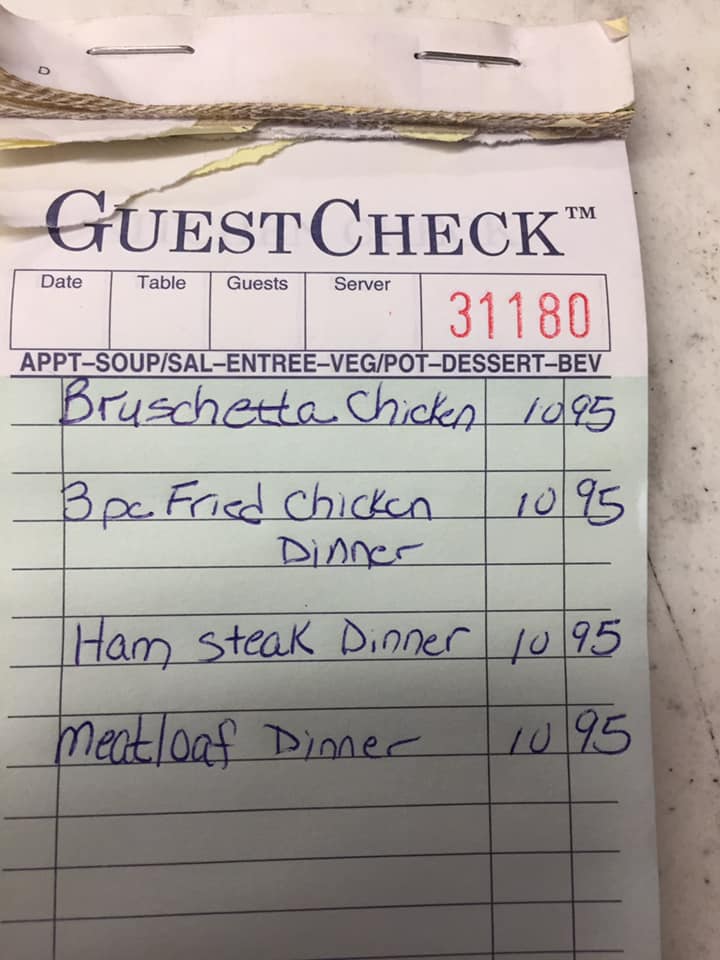 D
GUESTCHECK™
Date Table Guests Server 31180
APPT–SOUP/SAL–ENTREE–VEG/POT–DESSERT–BEV
Bruschetta Chicken 10 95
3 pc Fried Chicken 10 95
Dinner
Ham steak Dinner 10 95
Meatloaf Dinner 10 95